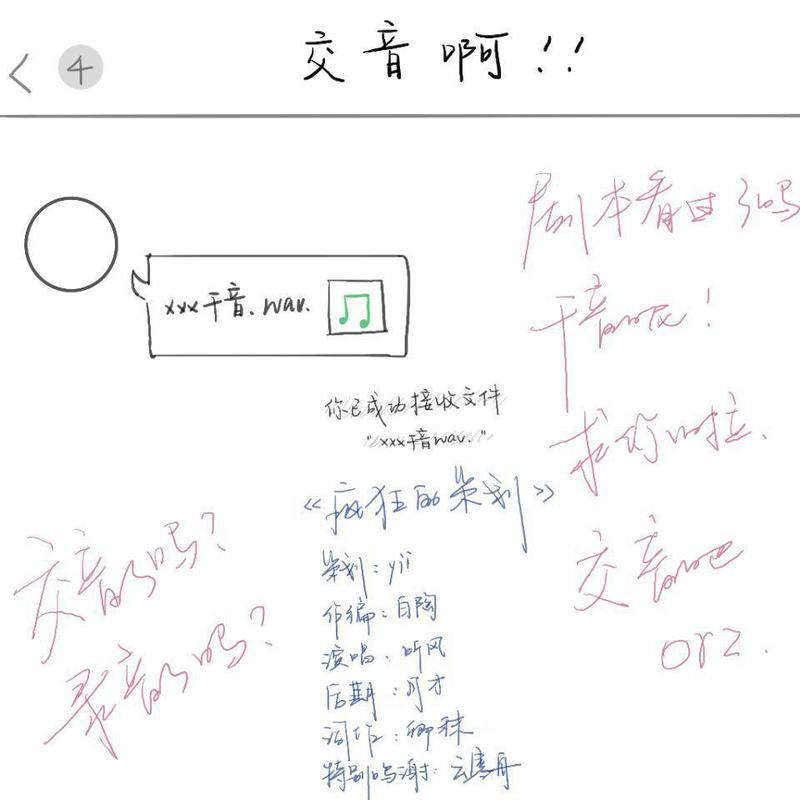 4
交音啊!!
剧本看过了吗
xxx干音.wav.
干音呢!
你已成功接收文件
"xxx干音wav."
求你啦
《疯狂的策划》
交音了吗?
录音了吗?
交音吧
orz.
策划:yii
作编:白陶
演唱:听风
后期:月才
词作:卿秣
特别鸣谢:云骞舟